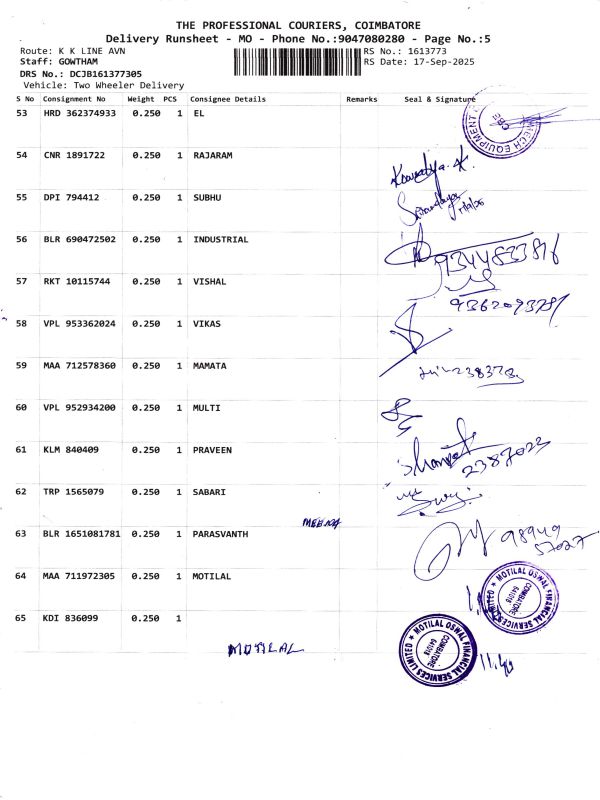 THE PROFESSIONAL COURIERS, COIMBATORE
Delivery Runsheet - MO - Phone No.:9047080280 - Page No.:5
Route: K K LINE AVN RS No.: 1613773
Staff: GOWTHAM RS Date: 17-Sep-2025
DRS No.: DCJB161377305
Vehicle: Two Wheeler Delivery
S No Consignment No Weight PCS Consignee Details Remarks Seal & Signature
53 HRD 362374933 0.250 1 EL
MECH EQUIPMENT
CBE
54 CNR 1891722 0.250 1 RAJARAM
55 DPI 794412 0.250 1 SUBHU
56 BLR 690472502 0.250 1 INDUSTRIAL
9344833816
57 RKT 10115744 0.250 1 VISHAL
58 VPL 953362024 0.250 1 VIKAS
59 MAA 712578360 0.250 1 MAMATA
60 VPL 952934200 0.250 1 MULTI
61 KLM 840409 0.250 1 PRAVEEN
2387023
62 TRP 1565079 0.250 1 SABARI
MEENA
63 BLR 1651081781 0.250 1 PARASVANTH
98949
57027
64 MAA 711972305 0.250 1 MOTILAL
MOTILAL OSWAL FINANCIAL SERVICES LIMITED
COIMBATORE
641018
65 KDI 836099 0.250 1
MOTILAL
MOTILAL OSWAL FINANCIAL SERVICES LIMITED
COIMBATORE
641018
11.40